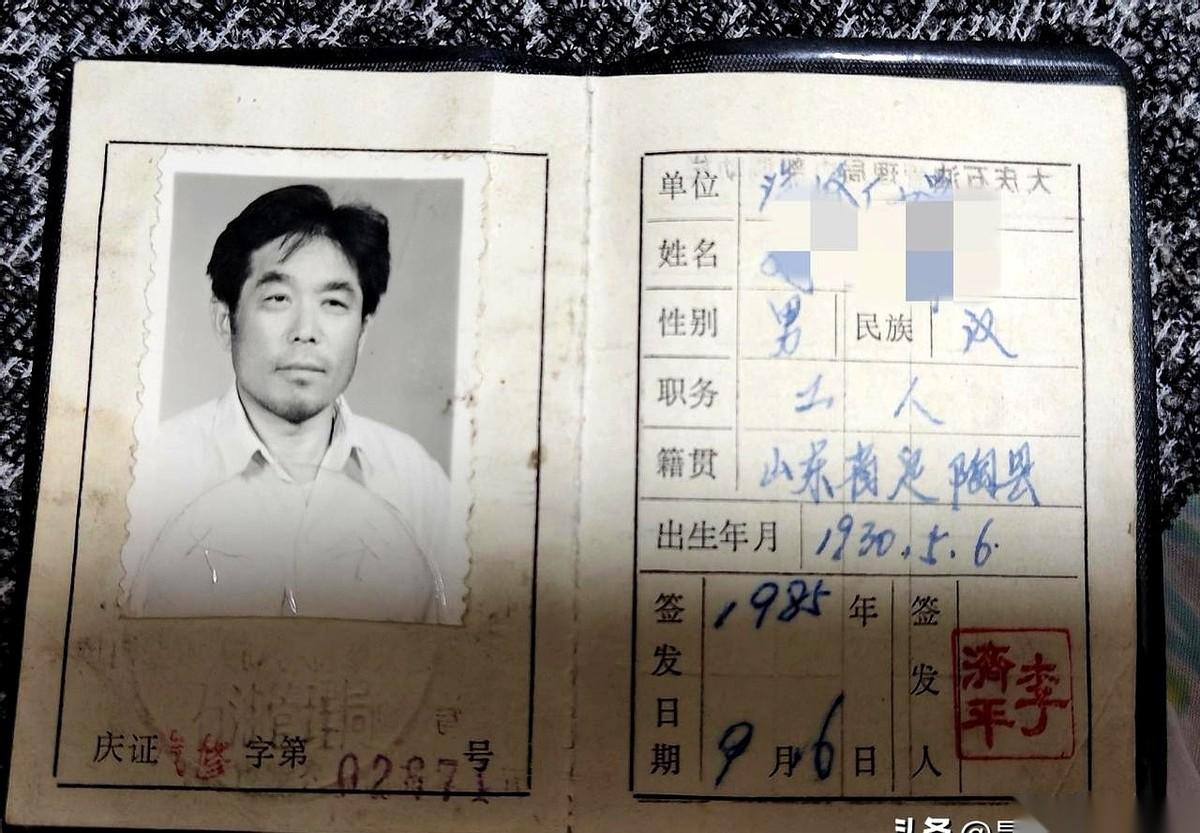 石油管理局
庆证汽修字第02871号
单位
姓名
性别 男 民族 汉
职务 工人
籍贯 山东省定陶县
出生年月 1930.5.6.
签发日期 1985年9月6日 签发人 李济平
头条 @